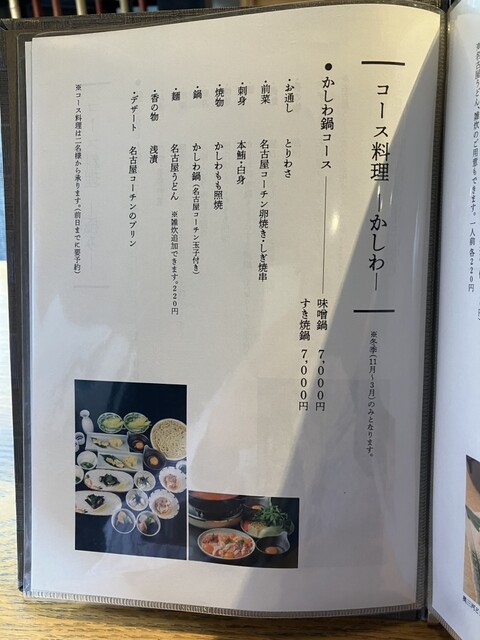 コース料理 ―かしわ―
※冬季(11月～3月)のみとなります。
●かしわ鍋コース 味噌鍋 7,000円
すき焼鍋 7,000円
・お通し とりわさ
・前菜 名古屋コーチン卵焼き・しぎ焼串
・刺身 本鮪・白身
・焼物 かしわもも照焼
・鍋 かしわ鍋(名古屋コーチン玉子付き)
・麺 名古屋うどん ※雑炊追加できます。220円
・香の物 浅漬
・デザート 名古屋コーチンのプリン
※コース料理は二名様から承ります。(前日までに要予約)
名古屋うどん、雑炊のご用意もできます。一人前 各220円